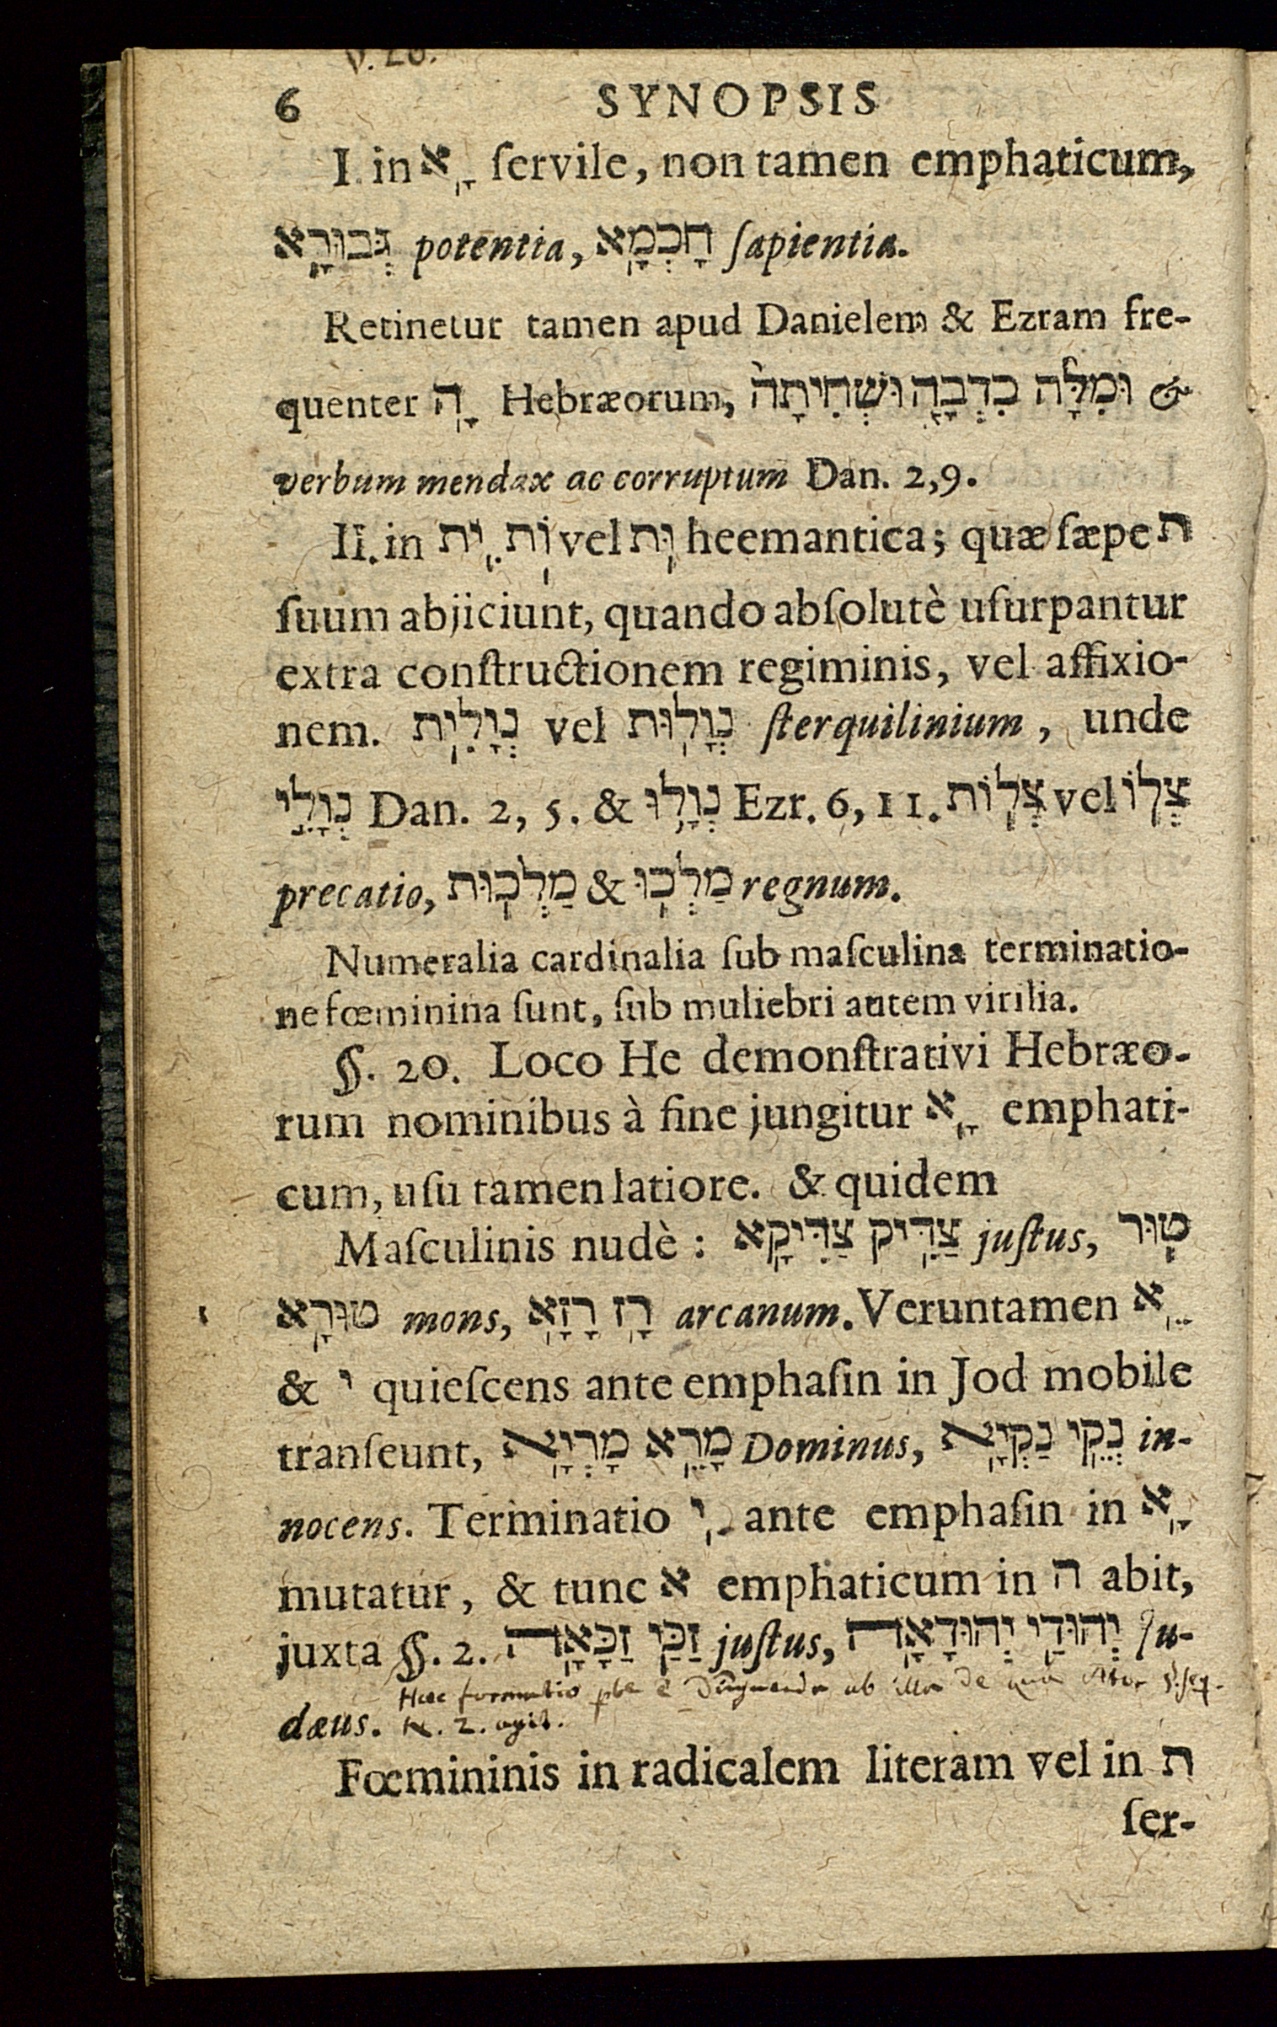 v. 20.
6 SYNOPSIS
I. in אָ ſervile, non tamen emphaticum,
גְּבוּרָא potentia, חָכְמָא ſapientia.
Retinetur tamen apud Danielem & Ezram fre-
quenter הָ Hebræorum, וּמִלָּה כִדְבָה וּשְׁחִיתָה &
verbum mendax ac corruptum Dan. 2,9.
II. in וֹת ִית vel וּת heemantica; quæ ſæpe ת
ſuum abjiciunt, quando abſolutè uſurpantur
extra conſtructionem regiminis, vel affixio-
nem. נְוָלִית vel נְוָלוּת ſterquilinium, unde
נְוָלִי Dan. 2, 5. & נְוָלוּ Ezr. 6, 11. צְלוֹת vel צְלוֹ
precatio, מַלְכוּת & מַלְכוּ regnum.
Numeralia cardinalia ſub maſculina terminatio-
ne fœminina ſunt, ſub muliebri autem virilia.
§. 20. Loco He demonſtrativi Hebræo-
rum nominibus à fine jungitur אָ emphati-
cum, uſu tamen latiore. & quidem
Maſculinis nudè: צַדִּיק צַדִּיקָא juſtus, טוּר
טוּרָא mons, רָז רָזָא arcanum. Veruntamen אֵ
& י quieſcens ante emphaſin in Jod mobile
tranſeunt, מָרֵא מָרְיָא Dominus, נְקֵי נַקְיָא in-
nocens. Terminatio ַי ante emphaſin in אָ
mutatur, & tunc א emphaticum in ה abit,
juxta §. 2. זַכַּי זַכָּאָה juſtus, יְהוּדַי יְהוּדָאָה Ju-
Haec formatio ab illa de qua §. ſeq.
dæus. N. 2. agit.
Fœmininis in radicalem literam vel in ת
ſer-